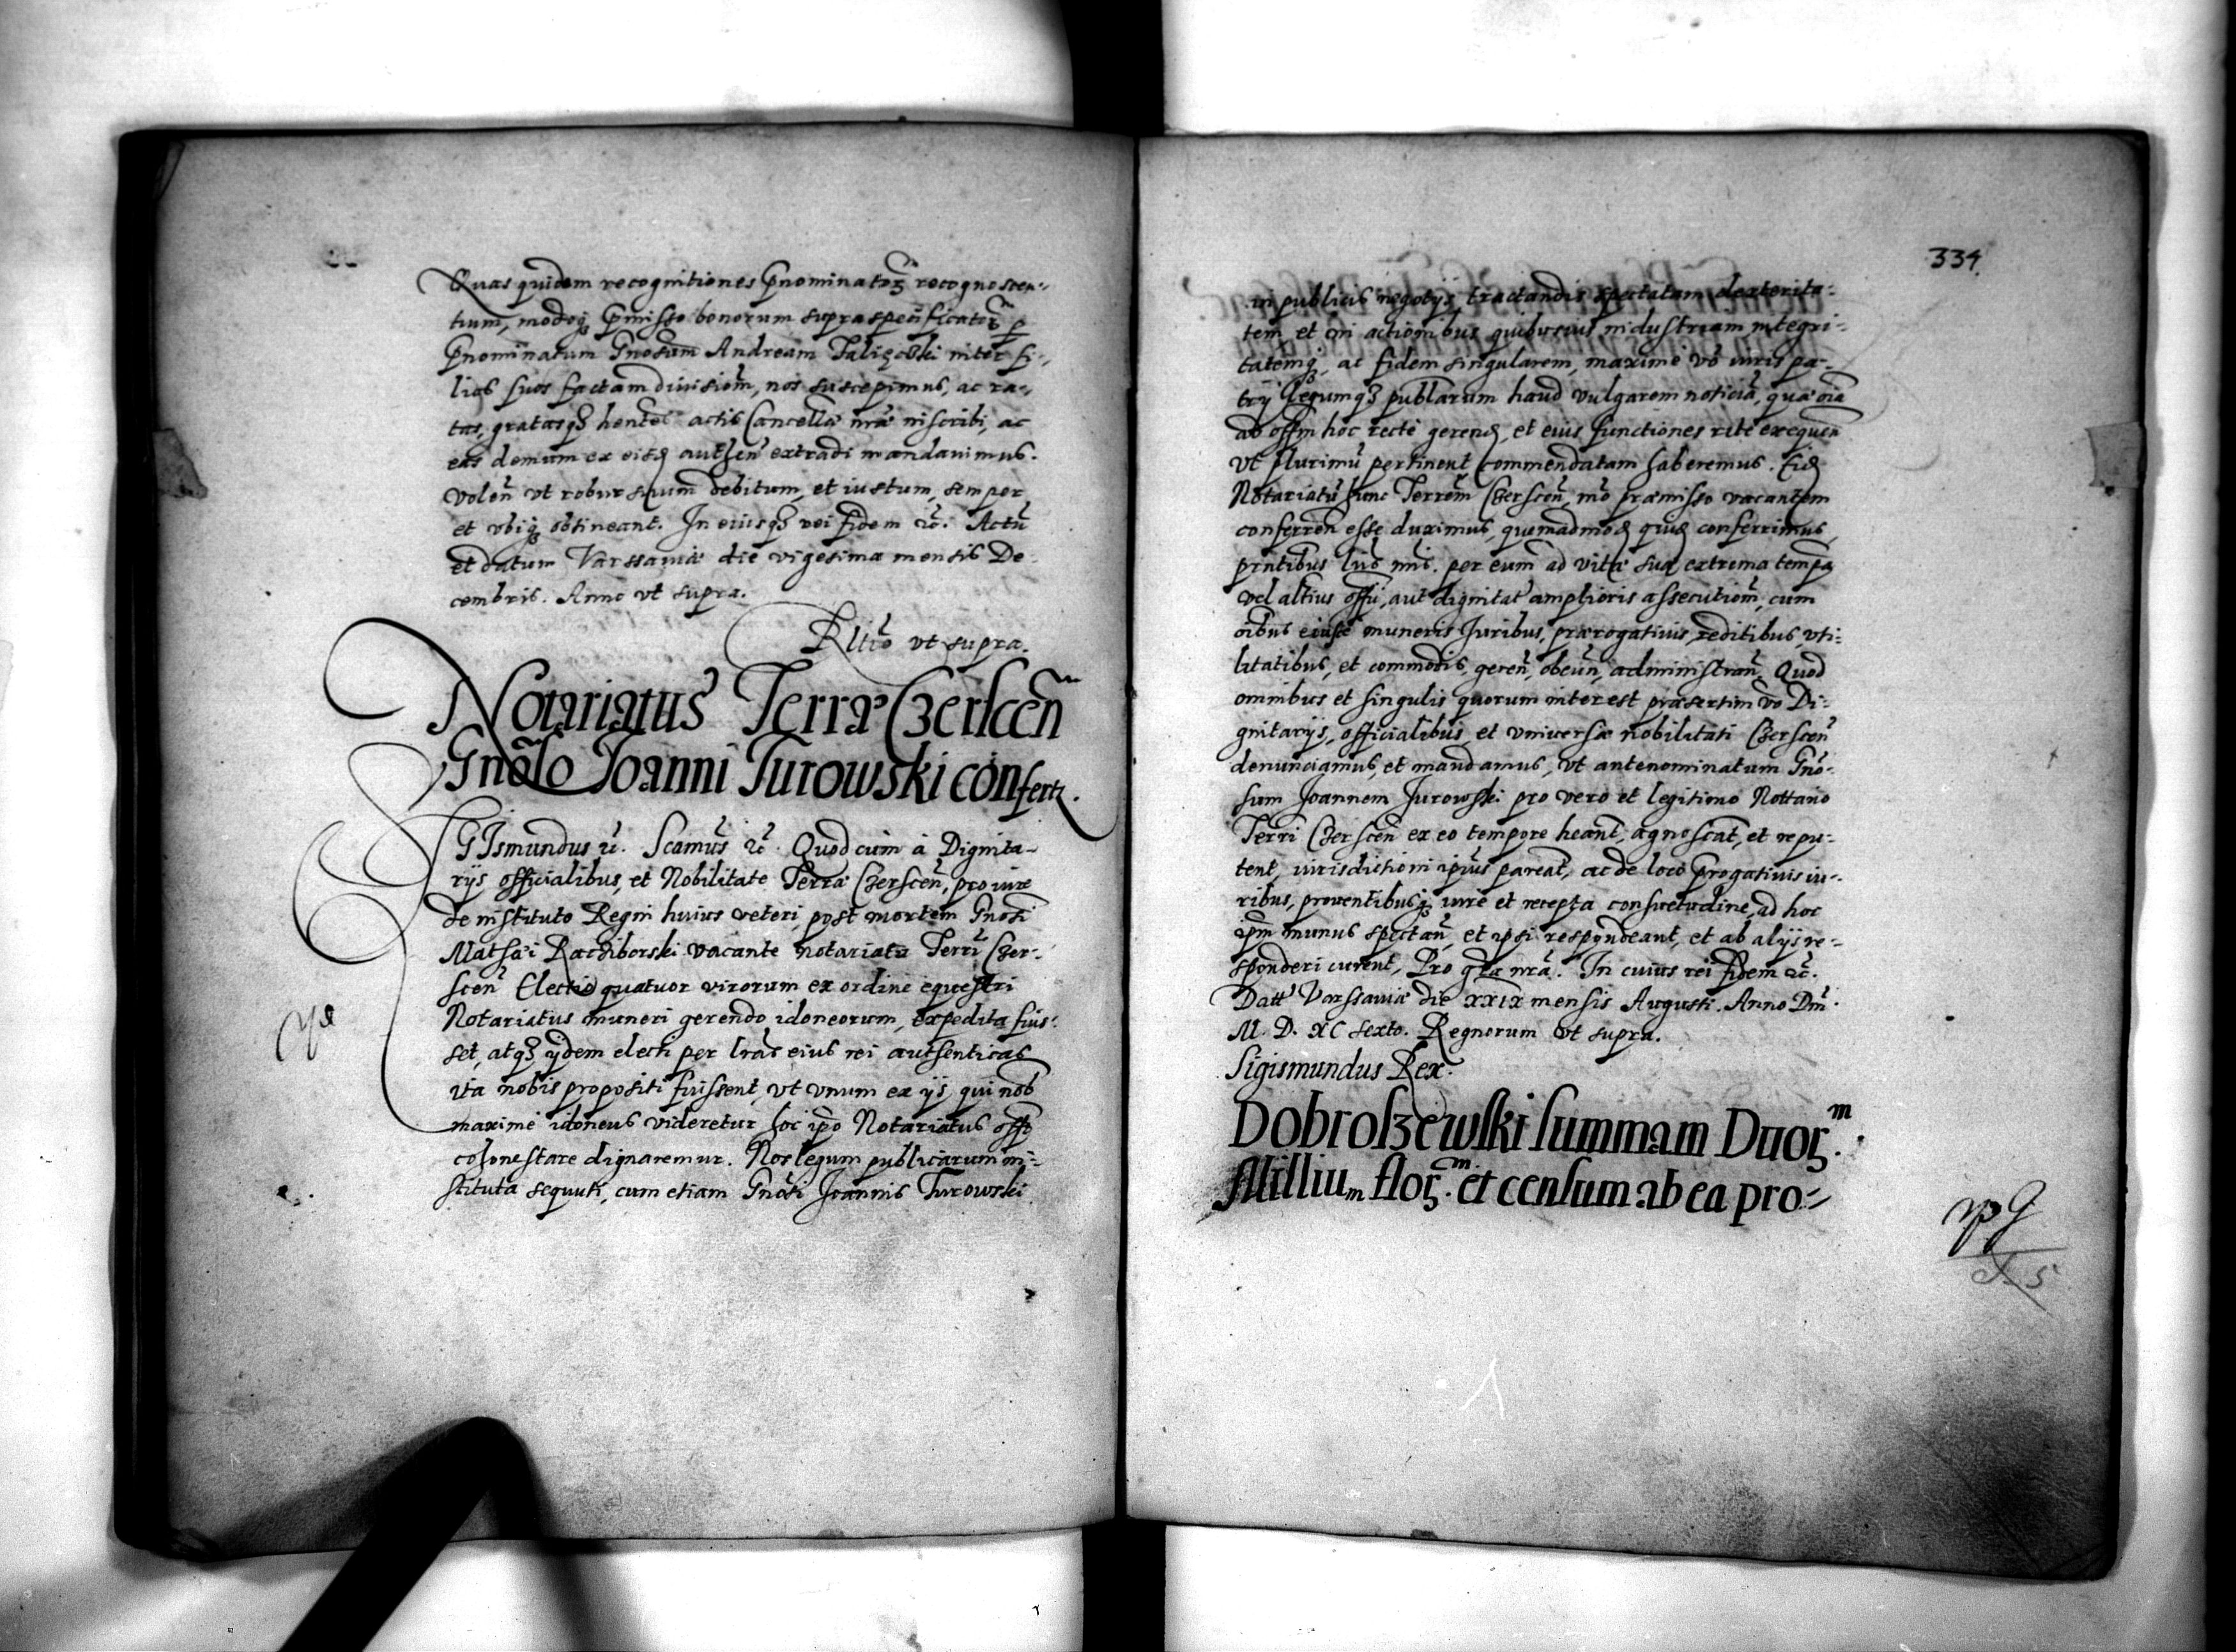 Quas quidem recognitiones pnominatoꝝ recognoscen-
tium, modoq; pmisso bonorum supraspecificatoꝝ p
pnominatum Gnosum Andream inter fi-
lios suos factam diuisiom, nos suscepimus, ac ra-
tas, gratasq; hentes actis Cancellæ nræ inscribi, ac
eas demum ex eisd authen extradi mandauimus.
volen vt robur suum debitum, et iustum, semper
et vbiq; obtineant. In eiusq; rei fidem ꝛc. Actu
et datum Varssauiæ die vigesima mensis De-
cembris. Anno vt supra.
Rltio vt supra.
Notariatus Terræ Czerscen
Gnoso Joanni Turowski confertr.
SIGIsmundus ꝛc. Scamus ꝛc. Quod cum à Dignita-
rijs officialibus, et Nobilitate Terræ Czerscen, pro iure
de instituto Regni huius veteri, post mortem Gnosi
Mathæi Raciborski vacante notariatu Terri Czer-
scen Electio quatuor virorum ex ordine equestri
Notariatus muneri gerendo idoneorum, expedita fuis-
set, atq; ydem electi per lras eius rei authenticas
ita nobis propositi fuissent, vt vnum ex ijs, qui nob
maximè idoneus videretur hoc ipo Notariatus offo
cohonestare dignaremur. Nos legum publicarum in-
stituta sequuti, cum etiam Gnosi Joannis Turowski
334
in publicis negotijs tractandis spectatam dexterita-
tem, et in actionibus quibusuis industriam integri-
tatemq; ac fidem singularem, maximè vo iuris pa-
trij Legumq; publarum haud vulgarem noticia, quæ oia
ad offm hoc rectè gerend, et eius functiones ritè exequen
vt plurimu pertinent commendatam haberemus. Eid
Notariatu hunc Terrem Czerscen, mo præmisso vacantem
conferren esse duximus, quemadmod quid conferrimus,
prntibus lris nris. per eum ad vitæ suæ extrema tempa
vel altius offii, aut dignitat amplioris assecutiom, cum
oibus eiusd muneris Juribus, prærogatiuis, reditibus, vti-
litatibus, et commodis, geren, obeun, administran. Quod
omnibus et singulis quorum interest præsertim vo Di-
gnitarijs, officialibus, et vniuersæ nobilitati Czerscen
denunciamus, et mandamus, vt antenominatum Gno-
sum Joannem Jurowski pro vero et legitimo Nottario
Terri Czerscen ex eo tempore heant, agnoscat, et repu-
tent, iurisdictioni ipius pareat, ac de loco progatiuis iu-
ribus, prouentibusq; iure et recepta consuetudine, ad hoc
ipm munus spectan, et ipsi respondeant, et ab alijs re-
sponderi curent, Pro gra nra. In cuius rei fidem ꝛc.
Datt Varssauiæ die XXIX mensis Augusti. Anno Dni.
M. D. XC sexto. Regnorum vt supra.
Sigismundus Rex.
Dobroszewski summam Duoꝝm.
Millium floꝝm. et censum ab ea pro-